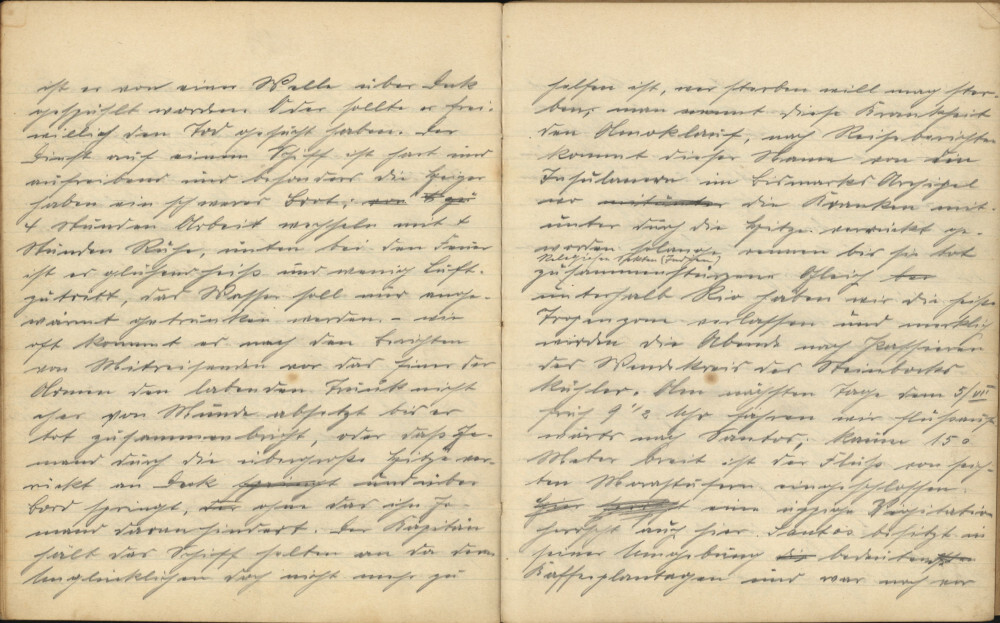 ist er von einer Welle über Deck
gespühlt worden. Oder sollte er frei-
willich den Tod gesucht haben. Der
Dienst auf einem Schiff ist hart und
aufreibend und besonders die Heizer
haben ein schweres Brot; von
4 Stunden Arbeit wechseln mit 4
Stunden Ruhe, unten bei den Feuer
ist er glühend heiß und wenig Luft-
zutritt, das Wasser soll nur ange-
wärmt getrunken werden. – wie
oft kommt es nach den Berichten
von Mitreisenden vor das Einer der
Armen den labenden Trunk nicht
eher von Munde absetzt bis er
tot zusammenbricht, oder daß Je-
mand durch die übergroße Hitze ver-
rückt an Deck springt und über
Bord springt, der ohne das ihn Je-
mand daran hindert. Der Kapitän
hält das Schiff selten an da dem
Unglücklichen doch nicht mehr zu
helfen ist, wer sterben will mag ster-
ben; man nennt diese Krankheit
den Amoklauf, nach Reiseberichten
kommt dieser Name von den
Insulanern im Bismarks Archipel
wo mitunter die Kranken mit-
unter durch die Hitze verrückt ge-
worden solange rennen bis sie tot
Religiöse Sekten (Indien)
zusammenstürzen. Gleich
unterhalb Rio haben wir die heiße
Tropenzone verlassen und merklich
wirden die Abende nach Passieren
des Wendekreis des Steinbocks
kühler. Am nächsten Tage dem 5/VI
früh 9 1/2 Uhr fahren wir flußauf-
wärts nach Santos; kaum 150
Meter breit ist der Fluß von
Morastufern eingeschlossen.
Hier eine üppige Vegitation
herscht auch hier. Santos besitzt in
seiner Umgebung die bedeutensten
Kaffeeplantagen und war noch vor